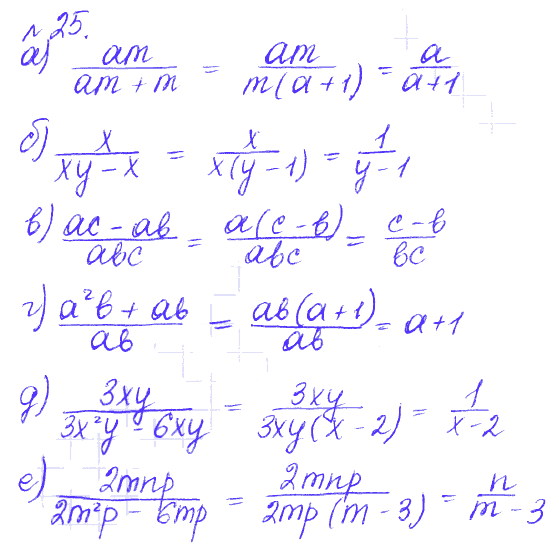 №25.
а) am/(am + m) = am/(m(a+1)) = a/(a+1)
б) x/(xy − x) = x/(x(y − 1)) = 1/(y − 1)
в) (ac − ab)/(abc) = (a(c − b))/(abc) = (c − b)/(bc)
г) (a²b + ab)/(ab) = (ab(a+1))/(ab) = a+1
д) 3xy/(3x²y − 6xy) = 3xy/(3xy(x − 2)) = 1/(x − 2)
е) 2mnp/(2m²p − 6mp) = 2mnp/(2mp(m − 3)) = n/(m − 3)